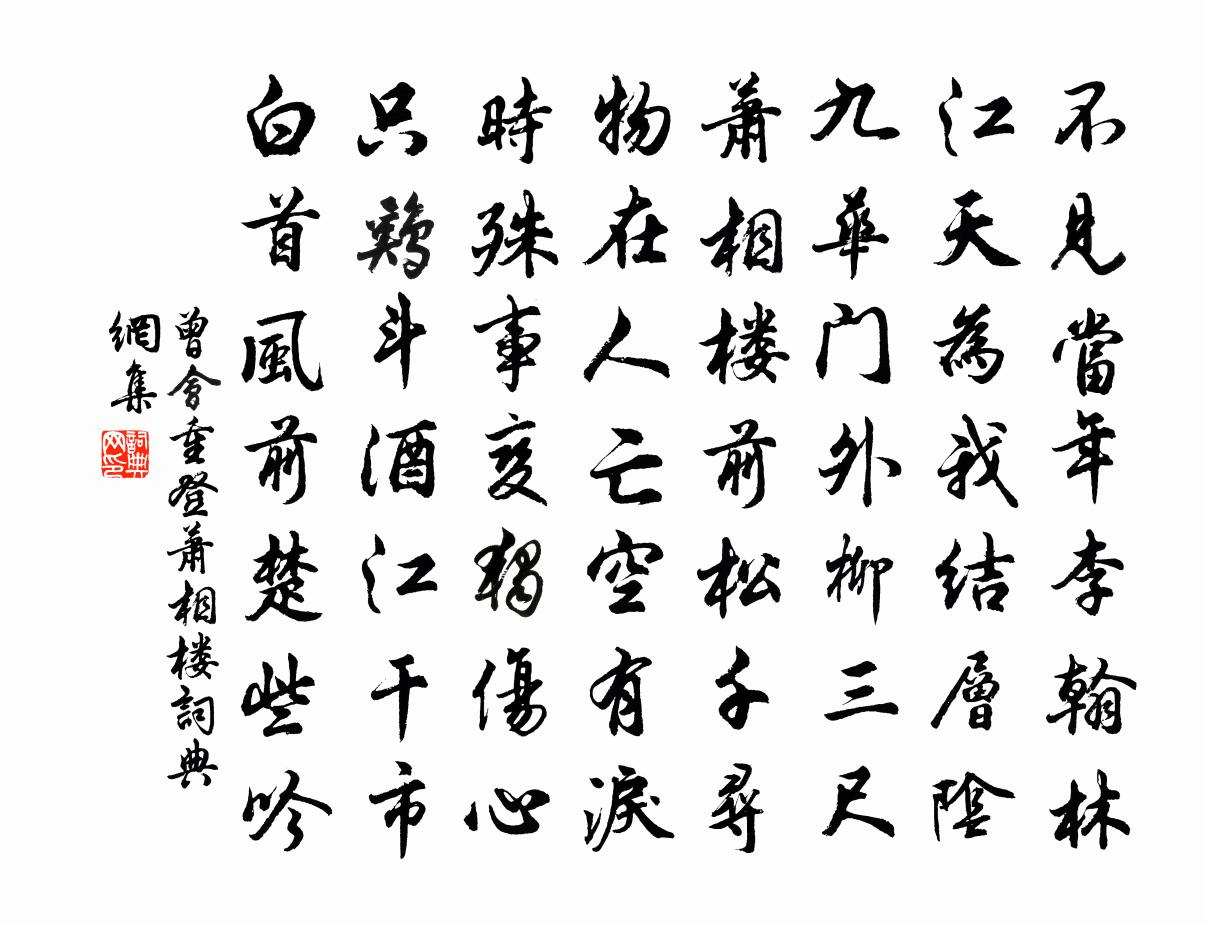 不見當年李翰林
江天為我結層陰
九華门外柳三尺
蕭相楼前松千尋
物在人亡空有淚
時殊事変獨傷心
只鷄斗酒江干市
白首風前楚些吟
曾會重登蕭相楼詞典
網集
詞典
网印